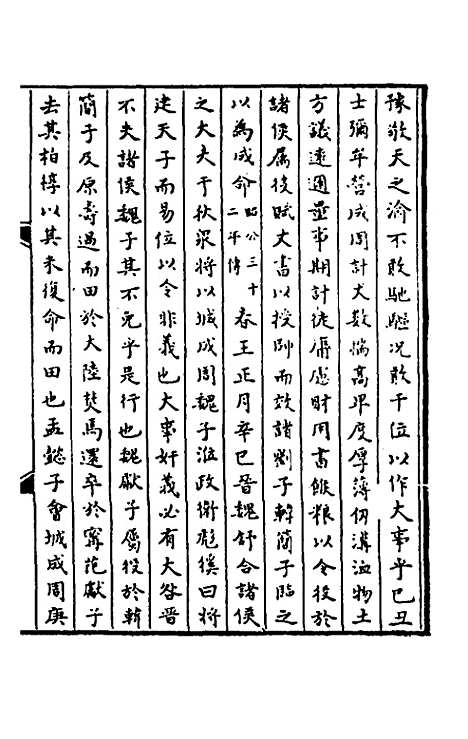 豫敬天之渝不敢馳驅況敢干位以作大事乎己丑
士彌牟營成周計丈數揣高卑度厚薄仞溝洫物土
方議遠邇量事期計徒庸慮財用書餱糧以令役於
諸侯屬役賦丈書以授帥而效諸劉子韓簡子臨之
以為成命昭公三十二年傳春王正月辛巳晉魏舒合諸侯
之大夫于狄泉將以城成周魏子涖政衛彪徯曰將
建天子而易位以令非義也大事奸義必有大咎晉
不失諸侯魏子其不免乎是行也魏獻子屬役於韓
簡子及原壽過而田於大陸焚馬還卒於甯范獻子
去其柏椁以其未復命而田也孟懿子會城成周庚